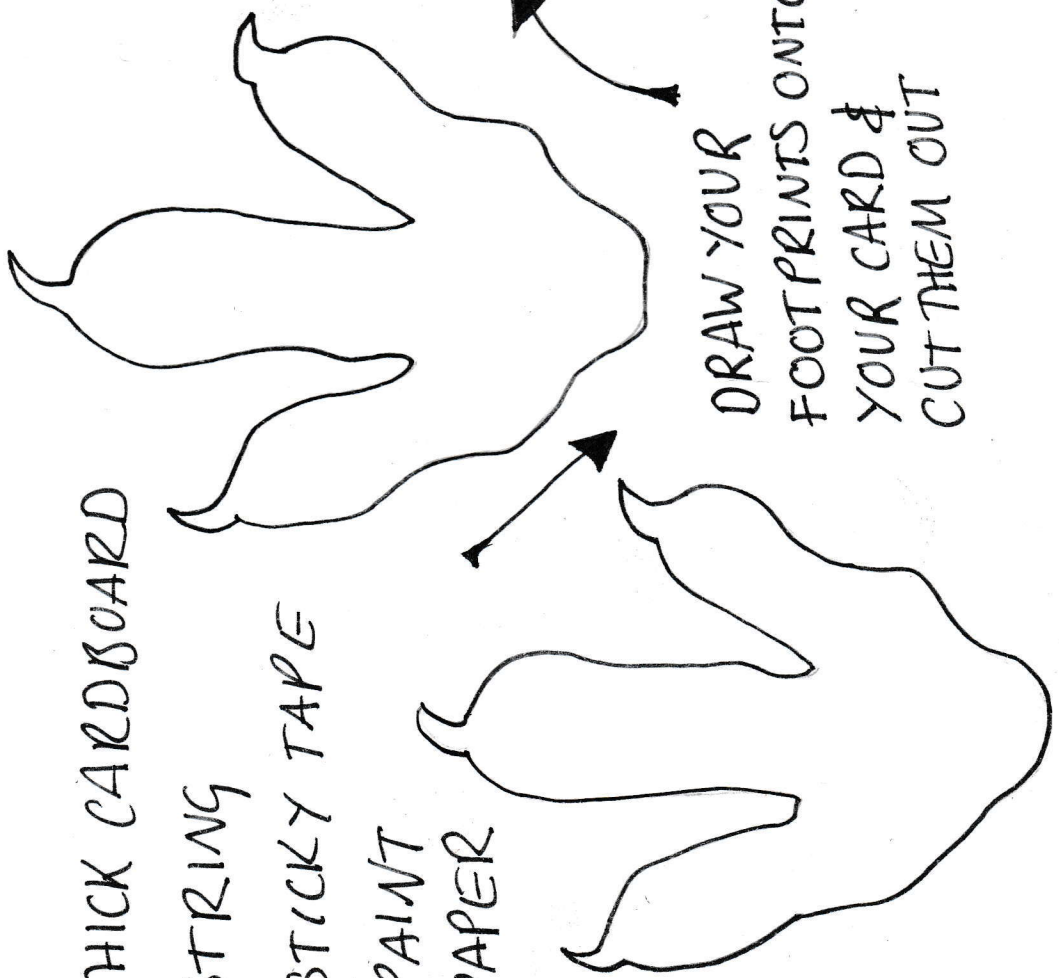 HICK CARDBOARD
TRING
STICKY TAPE
PAINT
PAPER
DRAW YOUR
FOOTPRINTS ONTO
YOUR CARD &
CUT THEM OUT